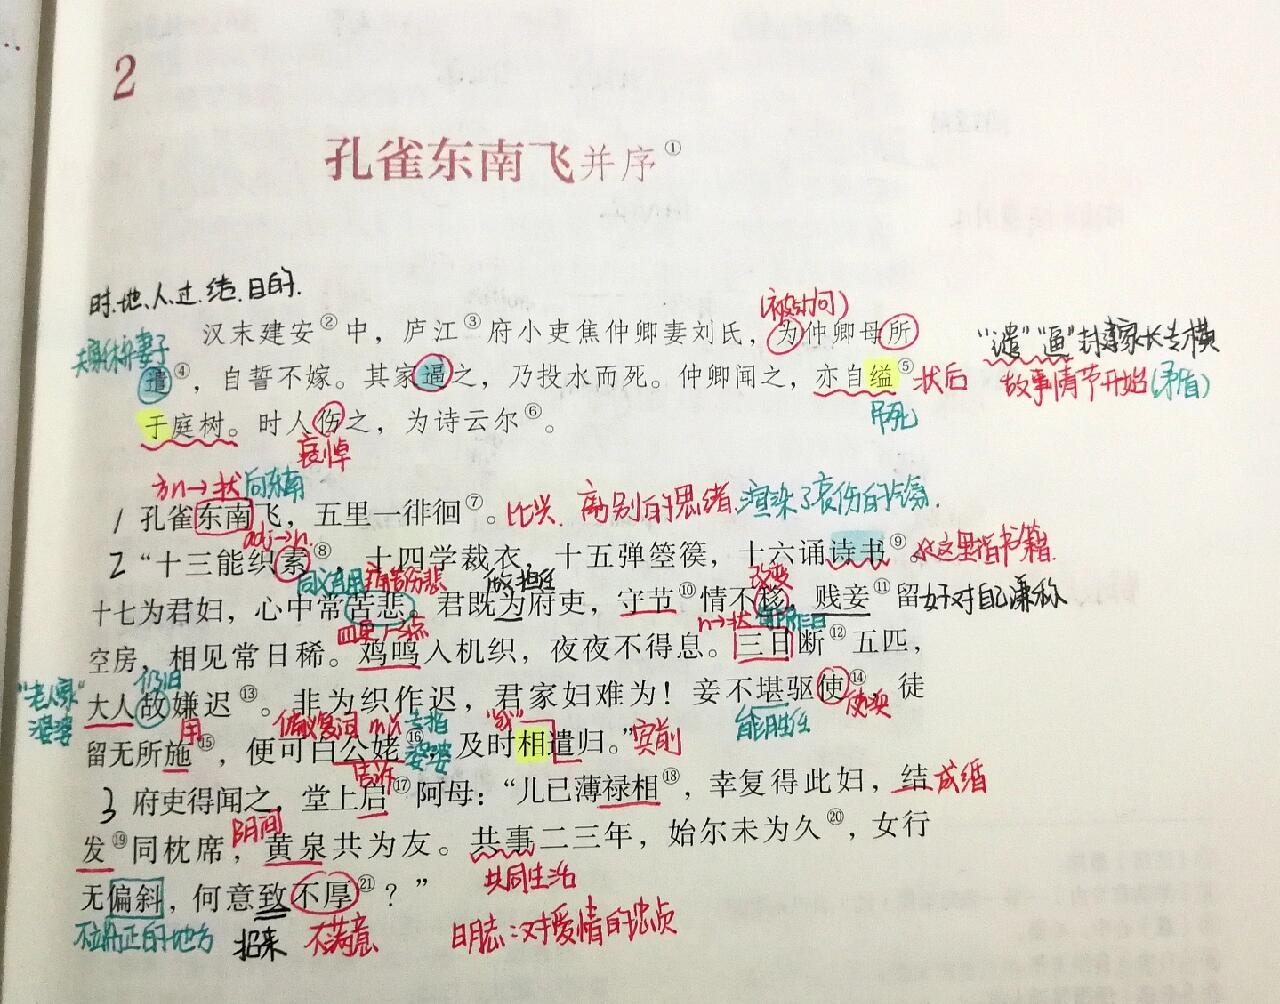 2
孔雀东南飞并序①
时.地.人.过.结.目的.
(被动句)
汉末建安②中，庐江③府小吏焦仲卿妻刘氏，为仲卿母所
"遣""逼"封建家长专横
夫家休弃妻子
遣④，自誓不嫁。其家逼之，乃投水而死。仲卿闻之，亦自缢⑤
状后
故事情节开始(矛盾)
吊死
于庭树。时人伤之，为诗云尔⑥。
哀悼
方n→状 向东南
1 孔雀东南飞，五里一徘徊⑦。比兴 离别的思绪.渲染了哀伤的气氛.
adj→n.
2 "十三能织素⑧，十四学裁衣，十五弹箜篌，十六诵诗书⑨。
这里指书籍.
同义连用 痛苦伤悲
做.担任
改变
十七为君妇，心中常苦悲。君既为府吏，守节⑩情不移，贱妾⑪留
女子对自己谦称
n→状
空房，相见常日稀。鸡鸣入机织，夜夜不得息。三日断⑫五匹，
仍旧
"老人家"
婆婆
大人故嫌迟⑬。非为织作迟，君家妇难为！妾不堪驱使⑭，徒
使唤
能胜任
用
偏义复词
专指
婆婆
"我"
留无所施⑮，便可白公姥⑯，及时相遣归。"
宾前
告诉
3 府吏得闻之，堂上启⑰阿母："儿已薄禄相⑱，幸复得此妇，结
成婚
阴间
发⑲同枕席，黄泉共为友。共事二三年，始尔未为久⑳，女行
共同生活
无偏斜，何意致不厚㉑？"
不端正的地方 招来 不满意 日月志:对爱情的忠贞